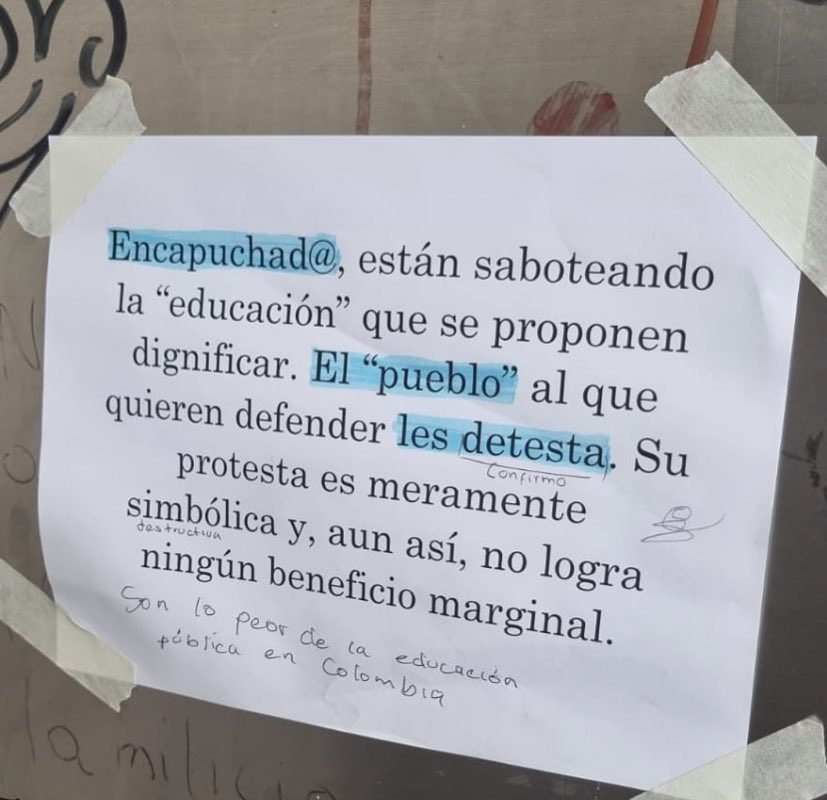 Encapuchad@, están saboteando
la “educación” que se proponen
dignificar. El “pueblo” al que
quieren defender les detesta. Su
Confirmo
protesta es meramente
simbólica y, aun así, no logra
destructiva
ningún beneficio marginal.
Son lo peor de la educación
pública en Colombia
la milicia